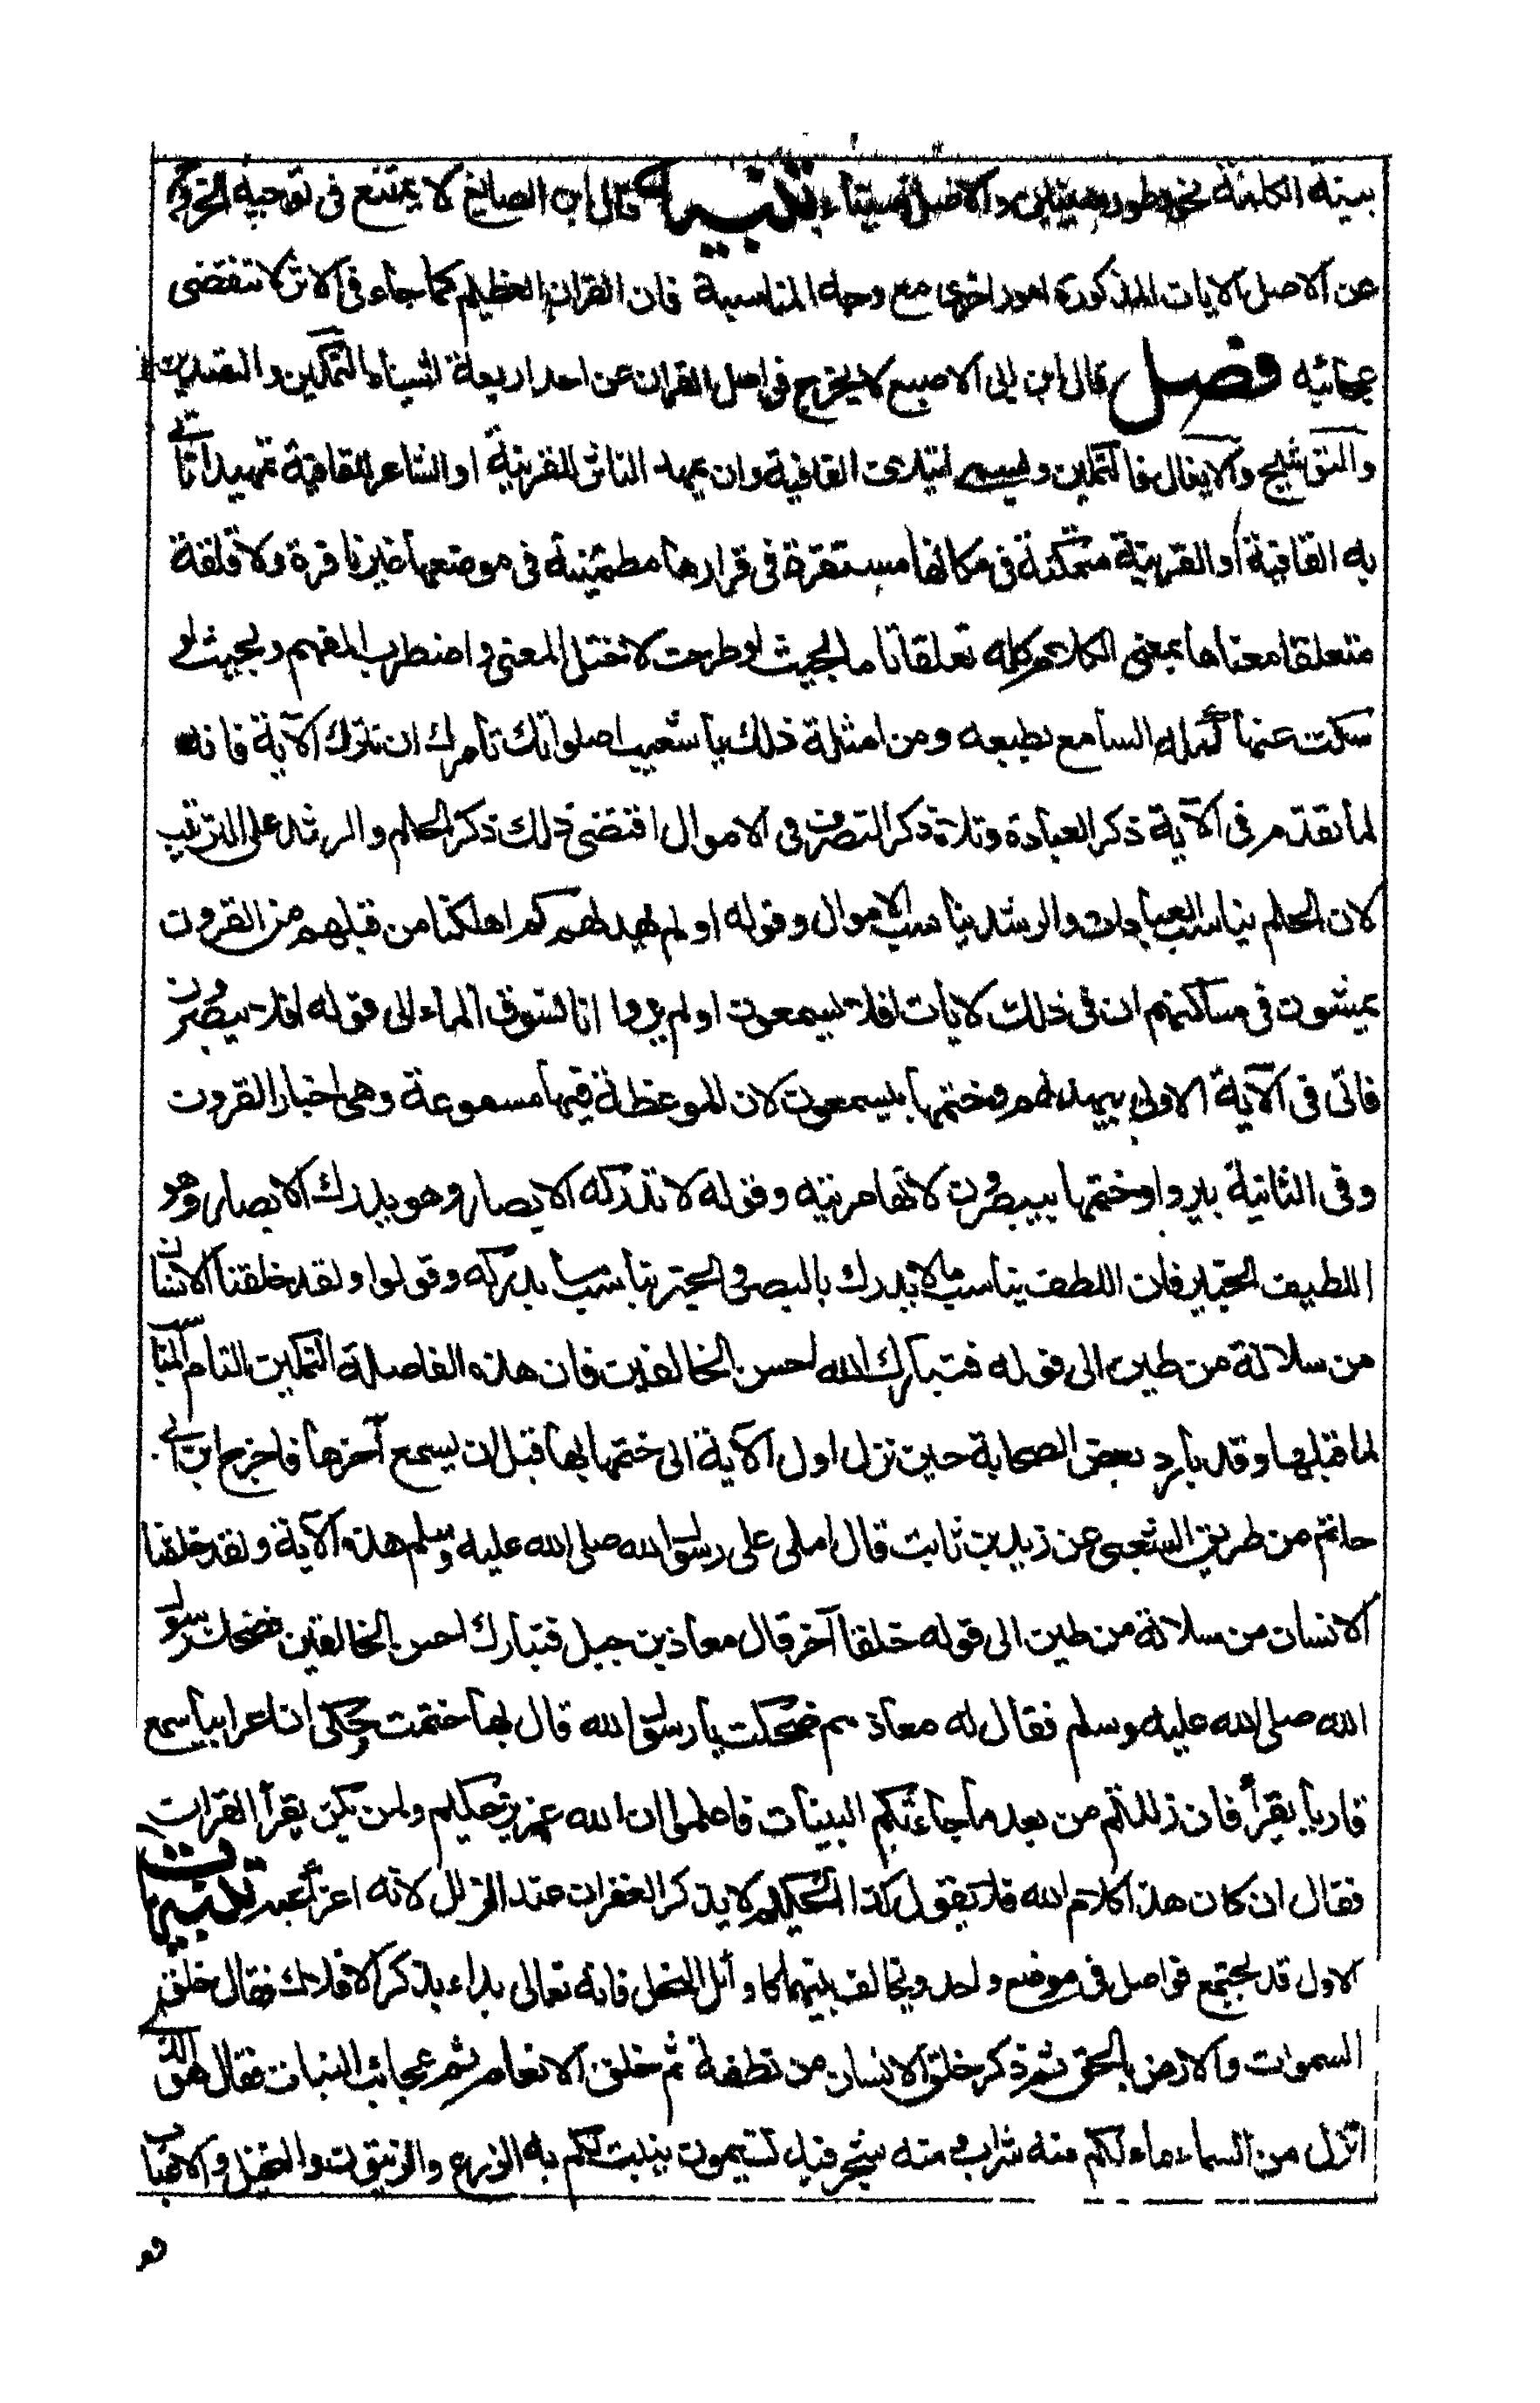 بنية الكلمة نحو وطور سينين والاصل سيناء تنبيه قال ابن الصايغ لا يمتنع في توجيه الخروج
عن الاصل الايات المذكورة امور اخرى مع وجه المناسبة فان القران العظيم كما جاء في الاثر لا تنقضي
عجائبه فصل قال ابن ابي الاصبع لا يخرج فواصل القران عن احد اربعة اشياء التمكين والتصدير
والتوشيح والايغال فالتمكين ويسمى ايتلاف القافية وان يمهد الناثر للقرينة او الشاعر للقافية تمهيدا تاتي
به القافية او القرينة متمكنة في مكانها مستقرة في قرارها مطمئنة في موضعها غير نافرة ولا قلقة
متعلقا معناها بمعنى الكلام كله تعلقا تاما بحيث لو طرحت لاختل المعنى واضطرب الفهم وبحيث لو
سكت عنها كمله السامع بطبعه ومن امثلة ذلك يا شعيب اصلواتك تأمرك ان نترك الآية فانه
لما تقدم في الآية ذكر العبادة وتلاه ذكر التصرف في الاموال اقتضى ذلك ذكر الحلم والرشد على الترتيب
لان الحلم يناسب العبادات والرشد يناسب الاموال وقوله اولم يهد لهم كم اهلكنا من قبلهم من القرون
يمشون في مساكنهم ان في ذلك لايات افلا يسمعون اولم يروا انا نسوق الماء الى قوله افلا يبصرون
فاتى في الآية الاولى بيهد لهم وختمها بيسمعون لان الموعظة فيها مسموعة وهي اخبار القرون
وفي الثانية بيروا وختمها بيبصرون لانها مرئيه وقوله لا تدركه الابصار وهو يدرك الابصار وهو
اللطيف الخبير فان اللطف يناسب ما لا يدرك بالبصر والخبر يناسب ما يدركه وقولوا ولقد خلقنا الانسان
من سلالة من طين الى قوله فتبارك الله احسن الخالقين فان هذه الفاصلة التمكين التام المناسب
لما قبلها وقد بادر بعض الصحابة حين نزل اول الآية الى ختمها بها قبل ان يسمع آخرها فاخرج ابن ابي
حاتم من طريق الشعبي عن زيد بن ثابت قال املى على رسول الله صلى الله عليه وسلم هذه الآية ولقد خلقنا
الانسان من سلالة من طين الى قوله خلقا آخر قال معاذ بن جبل فتبارك احسن الخالقين فضحك رسول
الله صلى الله عليه وسلم فقال له معاذ مم ضحكت يا رسول الله قال بها ختمت وحكى ان اعرابيا سمع
قاريا يقرأ فان زللتم من بعد ما جاءتكم البينات فاعلموا ان الله عزيز حكيم ولم يكن يقرأ القران
فقال ان كان هذا كلام الله فلا يقول كذا الحكيم لا يذكر الغفران عند الزلل لانه اغرأ عبد تنبيهات
الاول قد يجتمع فواصل في موضع واحد ويخالف بينهما كاوائل النحل فانه تعالى بداء بذكر الافلاك فقال خلق
السموات والارض بالحق ثم ذكر خلق الانسان من نطفة ثم خلق الانعام ثم عجائب النبات فقال هو الذي
انزل من السماء ماء لكم منه شراب ومنه شجر فيه تسيمون ينبت لكم به الزرع والزيتون والنخيل والاعناب